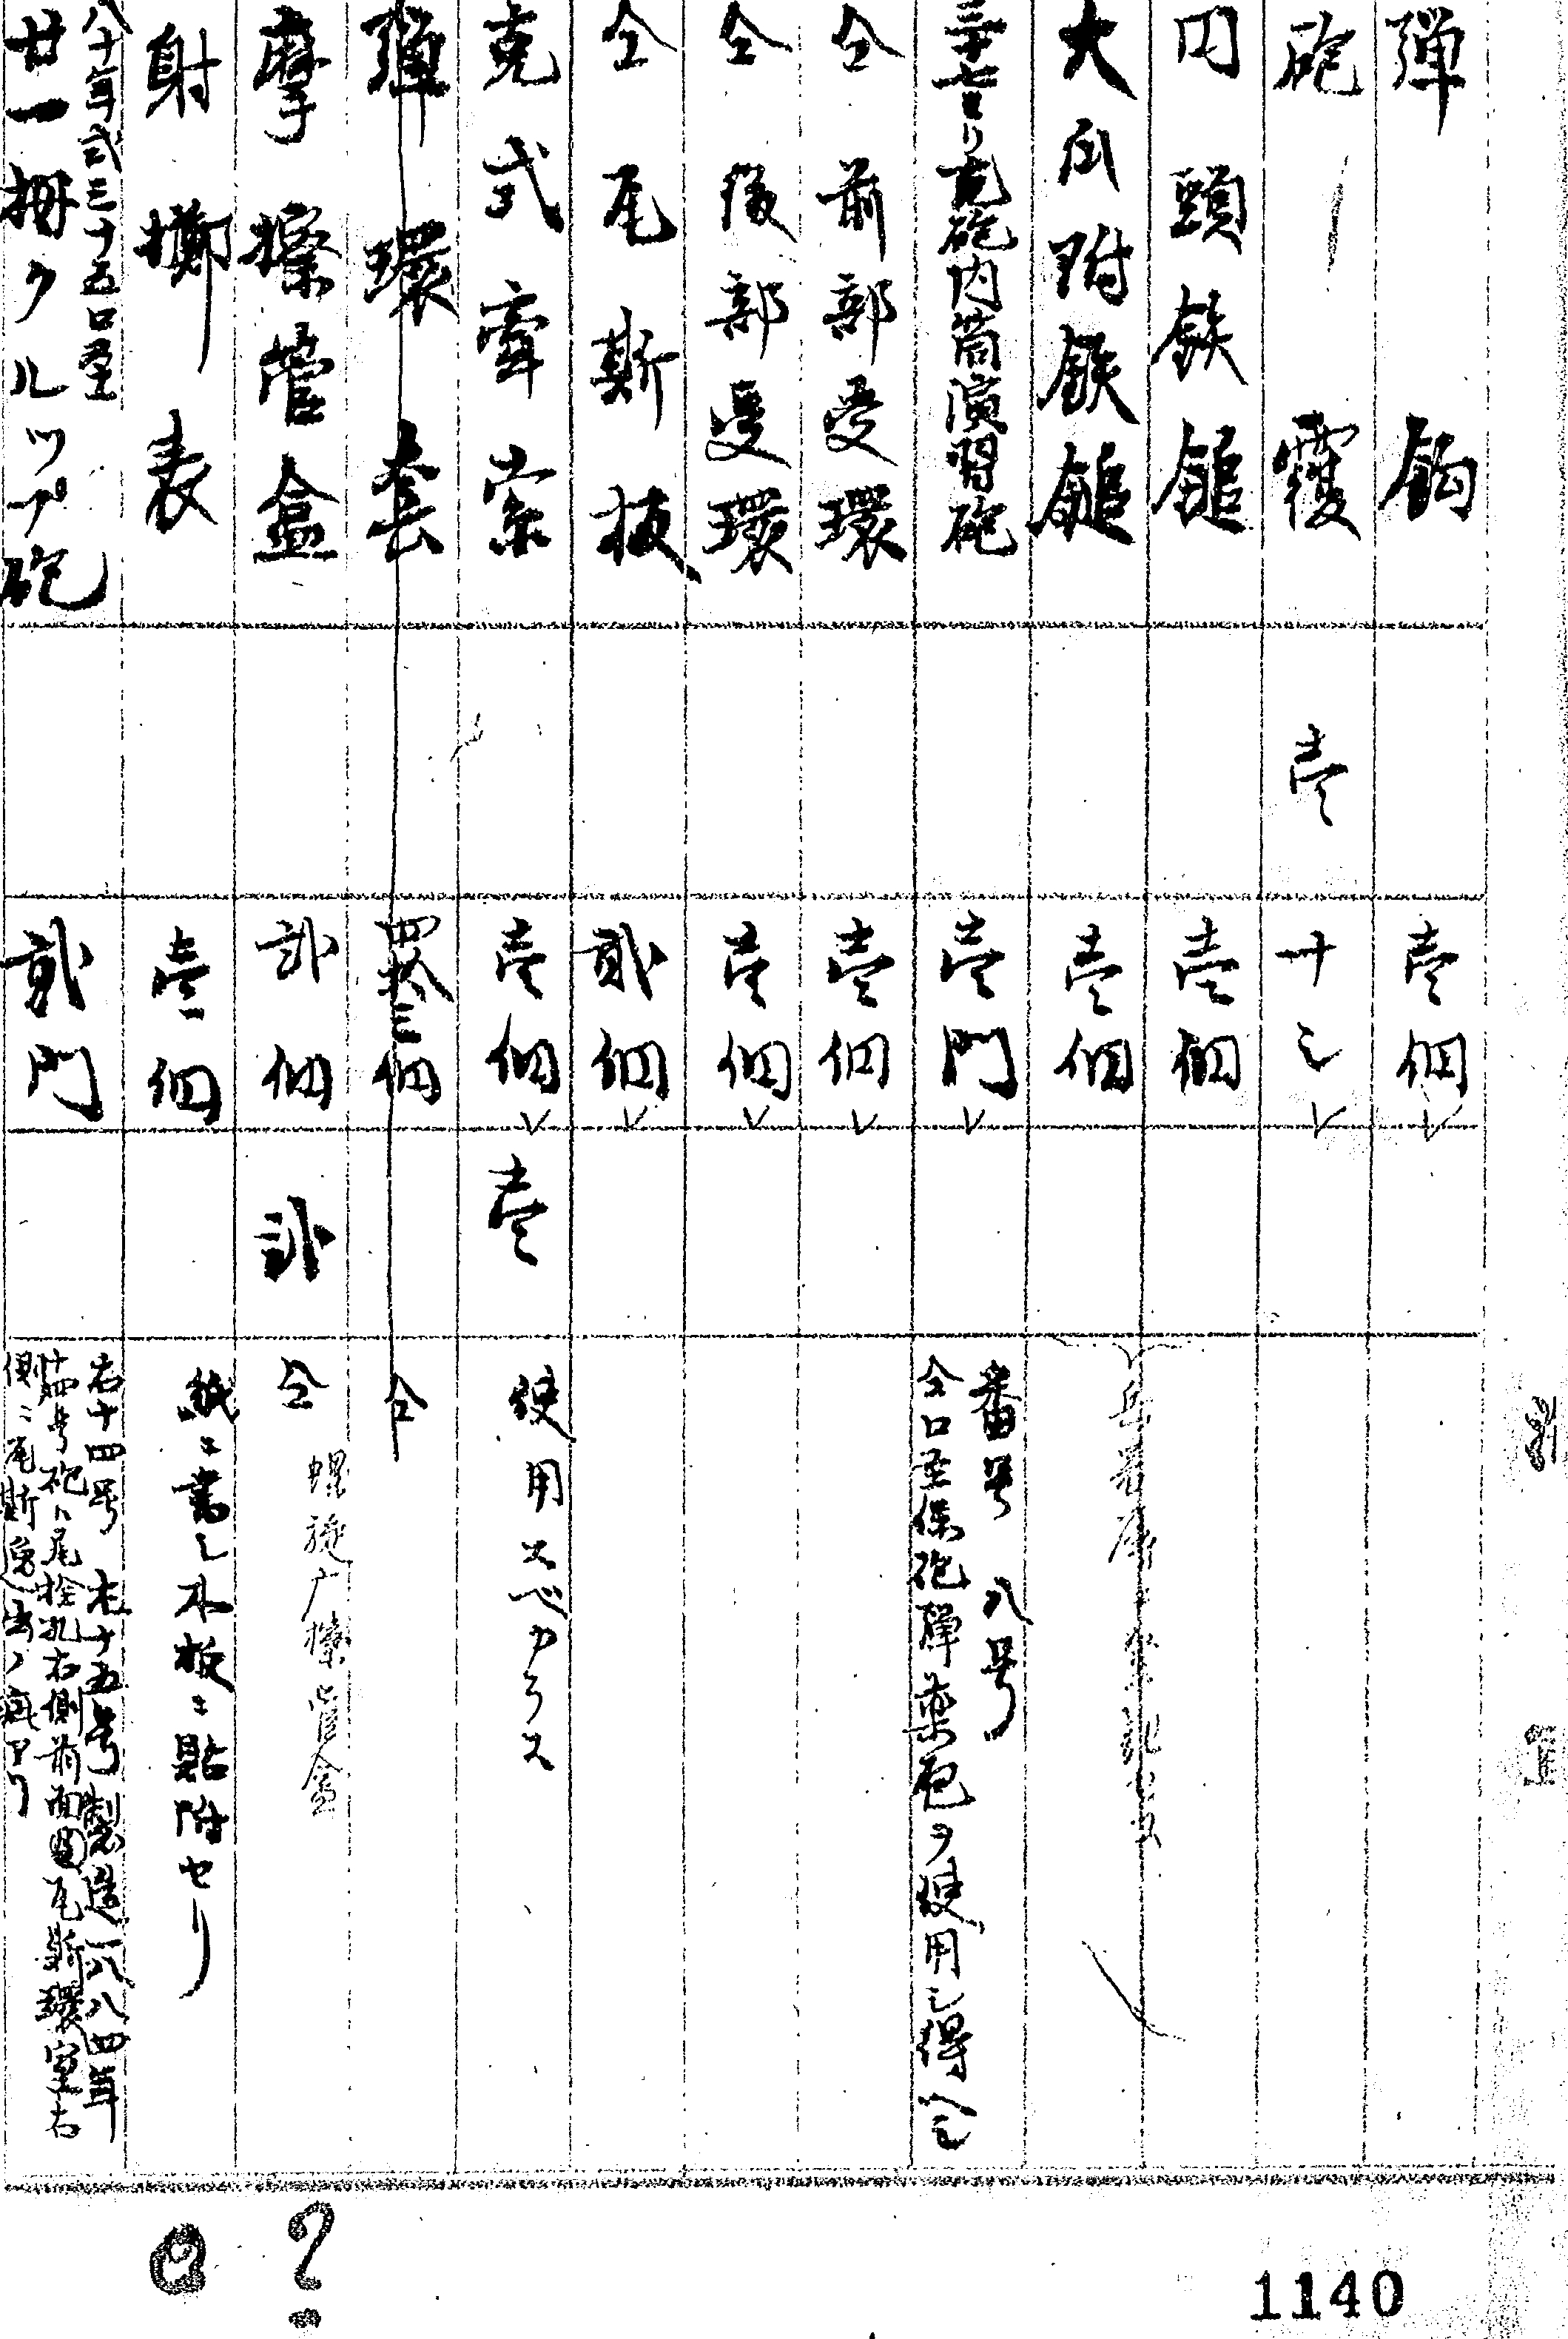 弾鈎 壱個
砲覆 壱 ナシ
円頭鉄鎚 壱個
大爪附鉄鎚 壱個
三十七ミリ克砲内筒演習砲 壱門 番号八号
仝口径保砲弾薬包ヲ使用シ得ヘシ
仝前部受環 壱個
仝後部受環 壱個
仝尾斯板 弐個
克式牽索 壱個 壱 使用スベカラス
弾環套 四拾三個 仝
摩擦管盒 弐個 弐 仝
螺旋广擦管盒
射擲表 壱個 紙ニ書シ木板ニ貼附セリ
八十年式三十五口径
廿一珊クルップ砲 弐門 右十四号 左十五号製造一八八四年
十四号砲ハ尾栓孔右側前面図瓦斯環室右
側ニ瓦斯 出ノ痕アリ
1140